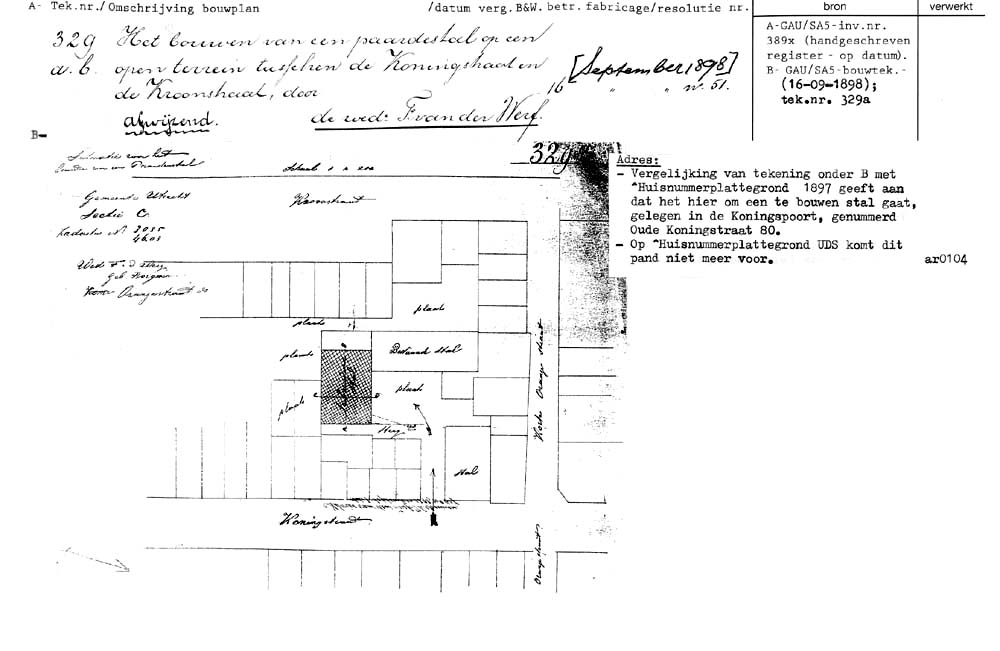 A- Tek.nr./Omschrijving bouwplan /datum verg.B&W. betr. fabricage/resolutie nr.
bron
verwerkt
329 Het bouwen van een paardestal op een
a.b. open terrein tusschen de Koningstraat en
de Kroonstraat, door
16 [September 1898]
" " n. 51.
afwijzend.
de wed: F. van der Werf.
A-GAU/SA5-inv.nr.
389x (handgeschreven
register - op datum).
B- GAU/SA5-bouwtek.-
(16-09-1898);
tek.nr. 329a
B-
329
Situatie van het
Schaal 1 à 200
Gemeente Utrecht
Sectie C.
Kadaster Nº
Kroonstraat
Wed F. v.d. Werf
geb
Adres:
- Vergelijking van tekening onder B met
^Huisnummerplattegrond 1897 geeft aan
dat het hier om een te bouwen stal gaat,
gelegen in de Koningspoort, genummerd
Oude Koningstraat 80.
- Op ^Huisnummerplattegrond UDS komt dit
pand niet meer voor.
ar0104
plaats
plaats
plaats
Bestaand Stal
plaats
plaats
Steeg
Stal
Korte Oranje Straat
Koningstraat
Oranjestraat